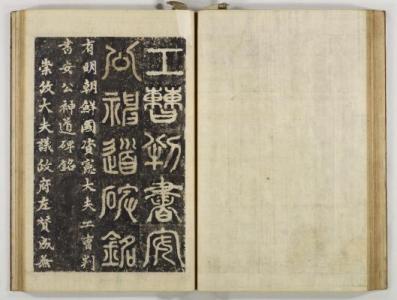 工曹判書安
公神道碑銘
有明朝鮮國資憲大夫工曹判
書安公神道碑銘
崇政大夫議政府左贊成兼